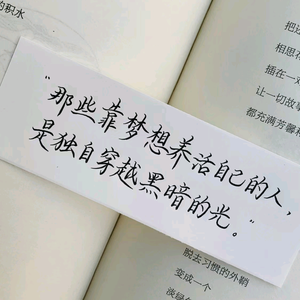 的积水
“那些靠梦想养活自己的人，
是独自穿越黑暗的光。”
相思
插在一
让一切故
都充满芳馨
脱去习惯的外鞘
变成一个